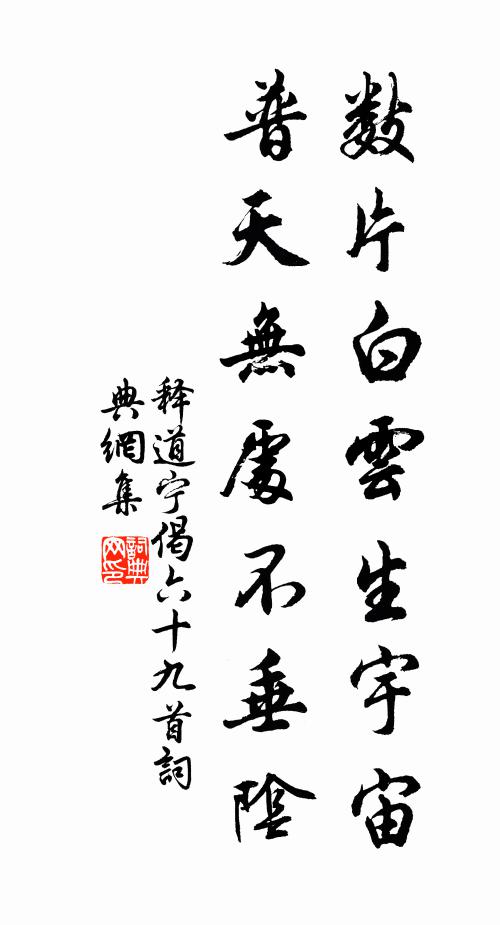 数片白雲生宇宙
普天無處不垂陰
释道宁偈六十九首詞
典網集
詞典
网印